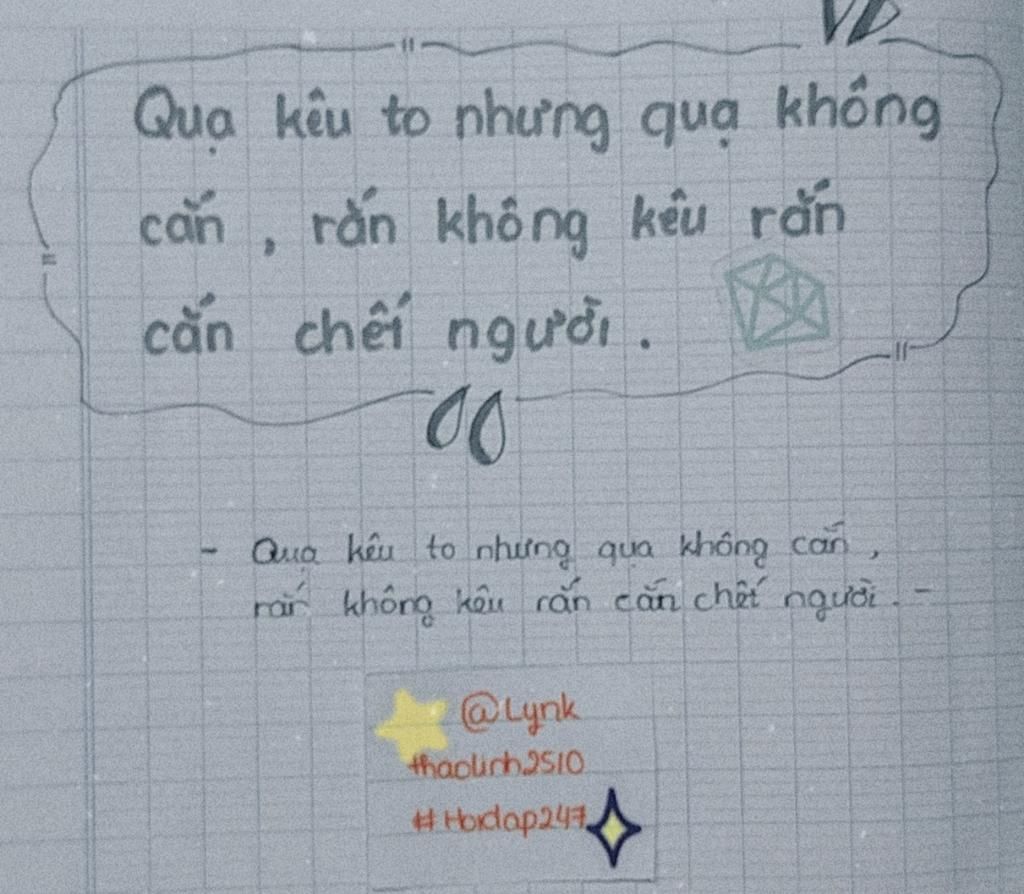 Quạ kêu to nhưng quạ không
cắn, rắn không kêu rắn
cắn chết người.
- Quạ kêu to nhưng quạ không cắn,
rắn không kêu rắn cắn chết người. -
@Lynk
thaolinh2510
#Hoidap247